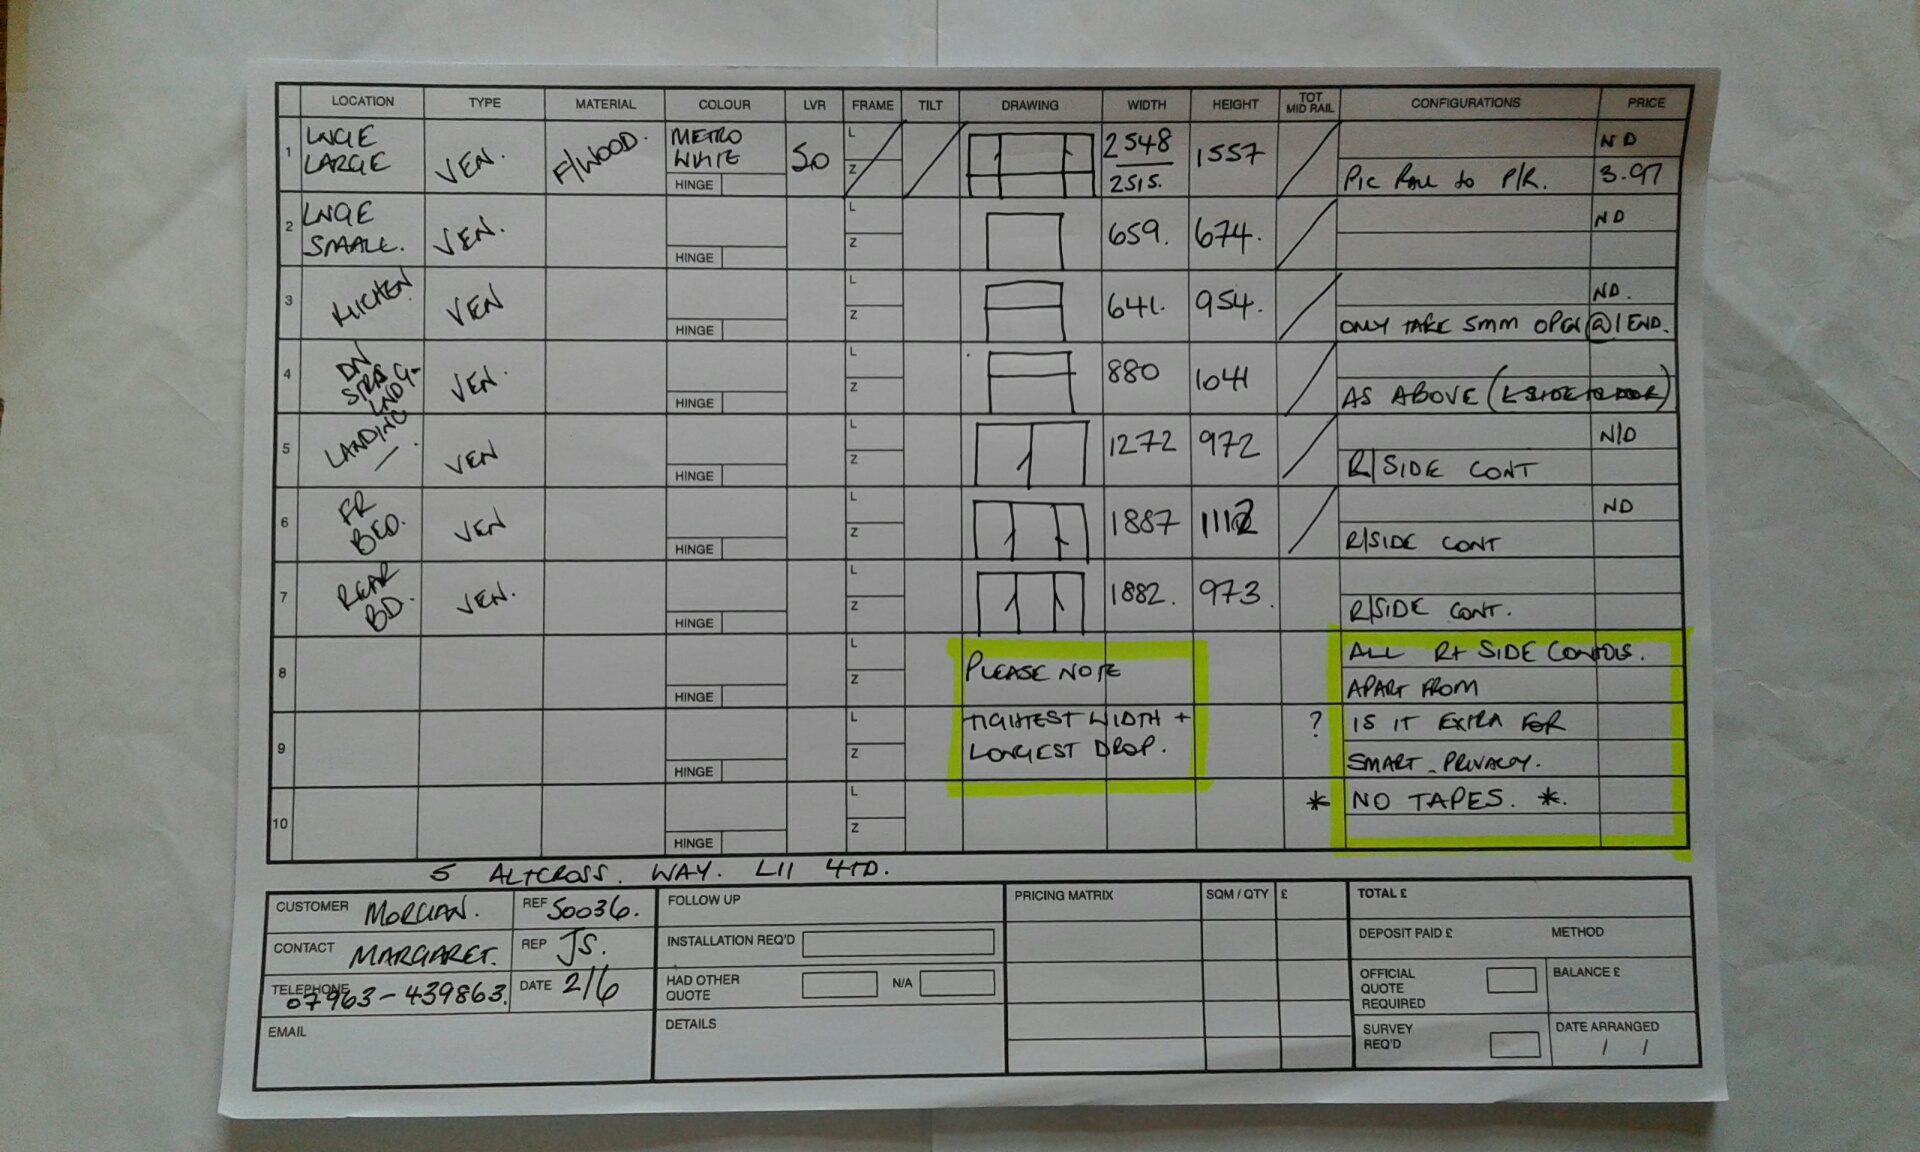 LOCATION TYPE MATERIAL COLOUR LVR FRAME TILT DRAWING WIDTH HEIGHT TOT MID RAIL CONFIGURATIONS PRICE
1 LNGE LARGE VEN. F/WOOD. METRO WHITE 50 L Z 2548 2515. 1557 ND
HINGE PIC RAIL to P/R. 3.97
2 LNGE SMALL. VEN. L Z 659. 674. ND
HINGE
3 KICHEN VEN L Z 641. 954. ND.
HINGE ONLY TAKE 5mm OPEN @ 1 END.
4 DN STRS LNDG- VEN. L Z 880 1041
HINGE AS ABOVE (L SIDE TO DOOR)
5 LANDING VEN L Z 1272 972 N/D
HINGE R/SIDE CONT
6 FR BED. VEN L Z 1887 1112 ND
HINGE R/SIDE CONT
7 REAR BD. VEN. L Z 1882. 973.
HINGE R/SIDE CONT.
8 L Z PLEASE NOTE ALL Rt SIDE CONTOLS.
HINGE APART FROM
9 L Z TIGHTEST WIDTH + ? IS IT EXTRA FOR
HINGE LONGEST DROP. SMART PRIVACY.
10 L Z * NO TAPES. *.
HINGE
5 ALTCROSS. WAY. L11 4TD.
CUSTOMER MORGAN. REF 50036. FOLLOW UP PRICING MATRIX SQM / QTY £ TOTAL £
CONTACT MARGARET. REP JS. INSTALLATION REQ'D DEPOSIT PAID £ METHOD
TELEPHONE 07963-439863. DATE 2/6 HAD OTHER QUOTE N/A OFFICIAL QUOTE REQUIRED BALANCE £
EMAIL DETAILS SURVEY REQ'D DATE ARRANGED
/ /